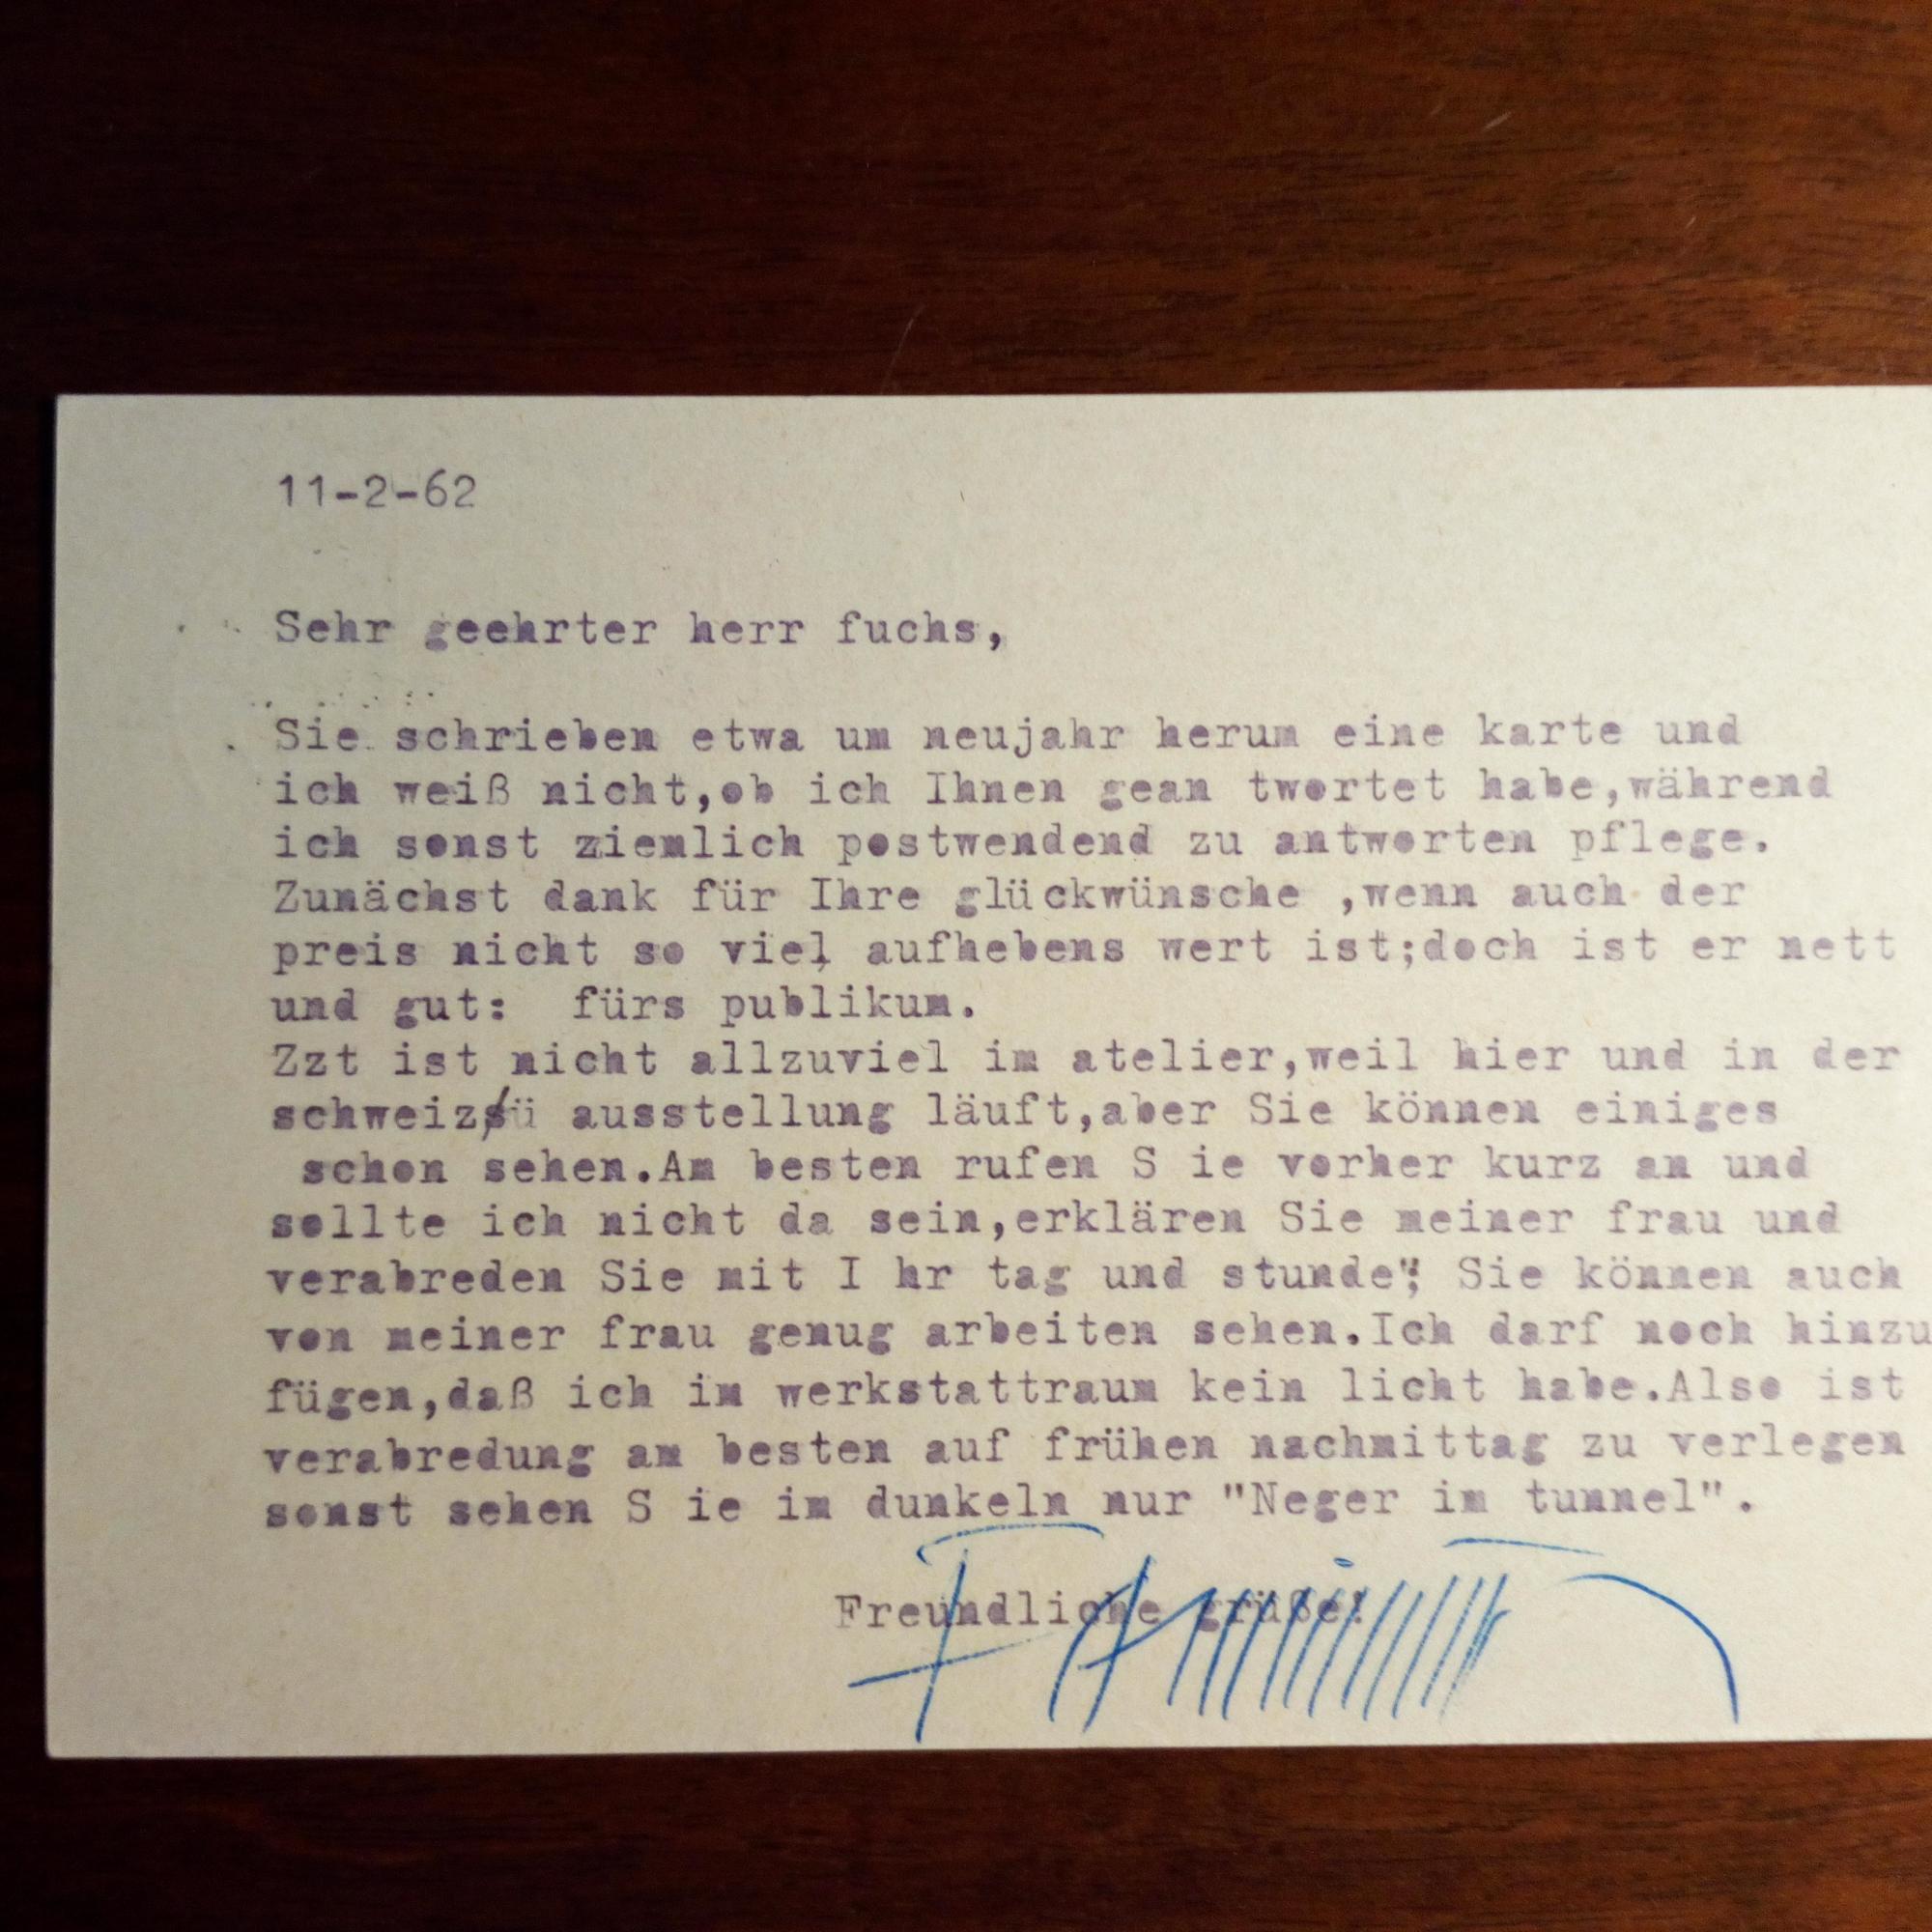 11-2-62
Sehr geehrter herr fuchs,
Sie schrieben etwa um neujahr herum eine karte und
ich weiß nicht,ob ich Ihnen gean twortet habe,während
ich sonst ziemlich postwendend zu antworten pflege.
Zunächst dank für Ihre glückwünsche ,wenn auch der
preis nicht so viel aufhebens wert ist;doch ist er nett
und gut:  fürs publikum.
Zzt ist nicht allzuviel im atelier,weil hier und in der
schweiz ausstellung läuft,aber Sie können einiges
schon sehen.Am besten rufen S ie vorher kurz an und
sollte ich nicht da sein,erklären Sie meiner frau und
verabreden Sie mit I hr tag und stunde; Sie können auch
von meiner frau genug arbeiten sehen.Ich darf noch hinzu
fügen,daß ich im werkstattraum kein licht habe.Also ist
verabredung am besten auf frühen nachmittag zu verlegen
sonst sehen S ie im dunkeln nur "Neger im tunnel".
Freundliche grüße!